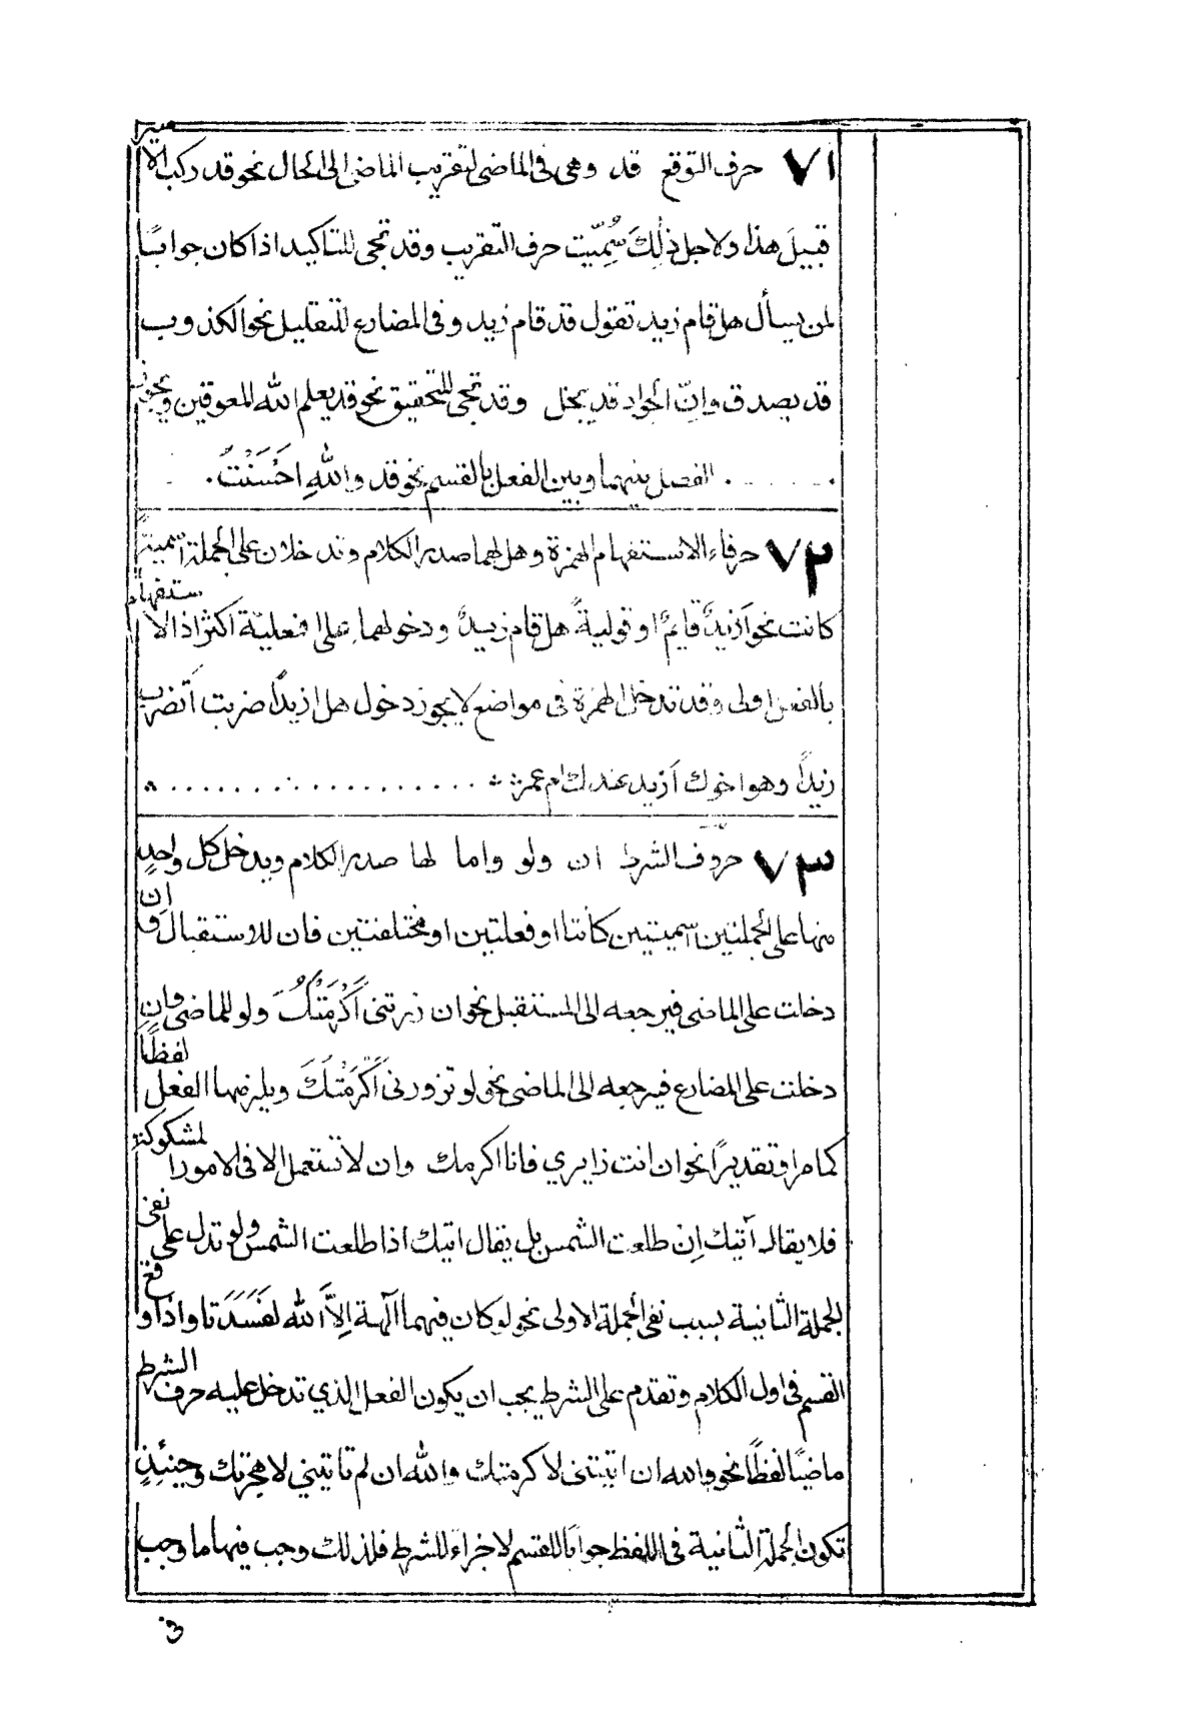 ٧١ حرف التوقع قد وهى فى الماضى لتقريب الماضى الى الحال نحو قد ركب الامير
قبيلَ هذا ولاجل ذٰلِكَ سُمِّيّت حرف التقريب وقد تجى للتاكيد اذا كان جوابًا
لمن يسأل هل قام زيد تقول قد قام زيد وفى المضارع للتقليل نحو الكذوب
قد يصدق وانّ الجواد قد يبخل وقد تجى للتحقيق نحو قد يعلم الله المعوقين ويجوز
الفصل بينهما وبين الفعل بالقسم نحو قد واللهِ احَسَنْتُ.
٧٢ حرفاء الاستفهام الهمزة وهل لهما صدر الكلام وتدخلان على الجملة اسميةً
كانت نحو اَزيدٌ قايمٌ او قوليةً هل قام زيدٌ ودخولهما على الفعلية اكثر اذ الاستفهام
بالفعل اولى وقد تدخل الهمزة فى مواضع لا يجوز دخول هل ازيدًا ضربت اَتضرب
زيدًا وهو اخوك اَزيد عندك ام عمرٌ
٧٣ حروف الشرط ان ولو واما لها صدر الكلام ويدخل كل واحدٍ
منها على الجملتين اسميتين كانتا او فعلتين او مختلفتين فان للاستقبال وان
دخلت على الماضى فيرجعه الى المستقبل نحو ان زرتنى اَكْرَمْتُكَ ولو للماضى وان
دخلت على المضارع فيرجعه الى الماضى نحو لو تزورنى اَكْرَمْتُكَ ويلزمها الفعل لفظًا
كما مر او تقديرًا نحو ان انت زايري فانا اكرمك وان لا تستعمل الا فى الامور المشكوكة
فلا يقال آتيك اِن طلعت الشمس بل يقال اتيك اذا طلعت الشمس ولو تدل على نفى
الجملة الثانية بسبب نفى الجملة الاولى نحو لو كان فيهما اَلهة اِلاَّ الله لَفَسَدَتا واذا وقع
القسم فى اول الكلام وتقدم على الشرط يجب ان يكون الفعل الذي تدخل عليه حرف الشرط
ماضيًا لفظًا نحو والله ان اتيتنى لاكرمتك والله ان لم تاتيني لاهجرتك وحينئذٍ
تكون الجملة الثانية فى اللفظ جوابًا للقسم لاجزاءً للشرط فلذلك وجب فيها ما وجب